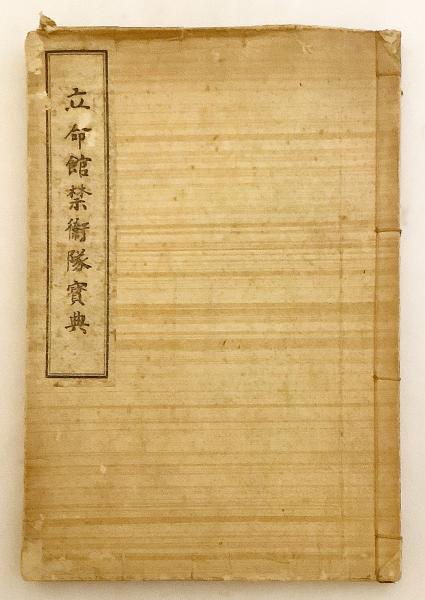 立命館禁衛隊寳典